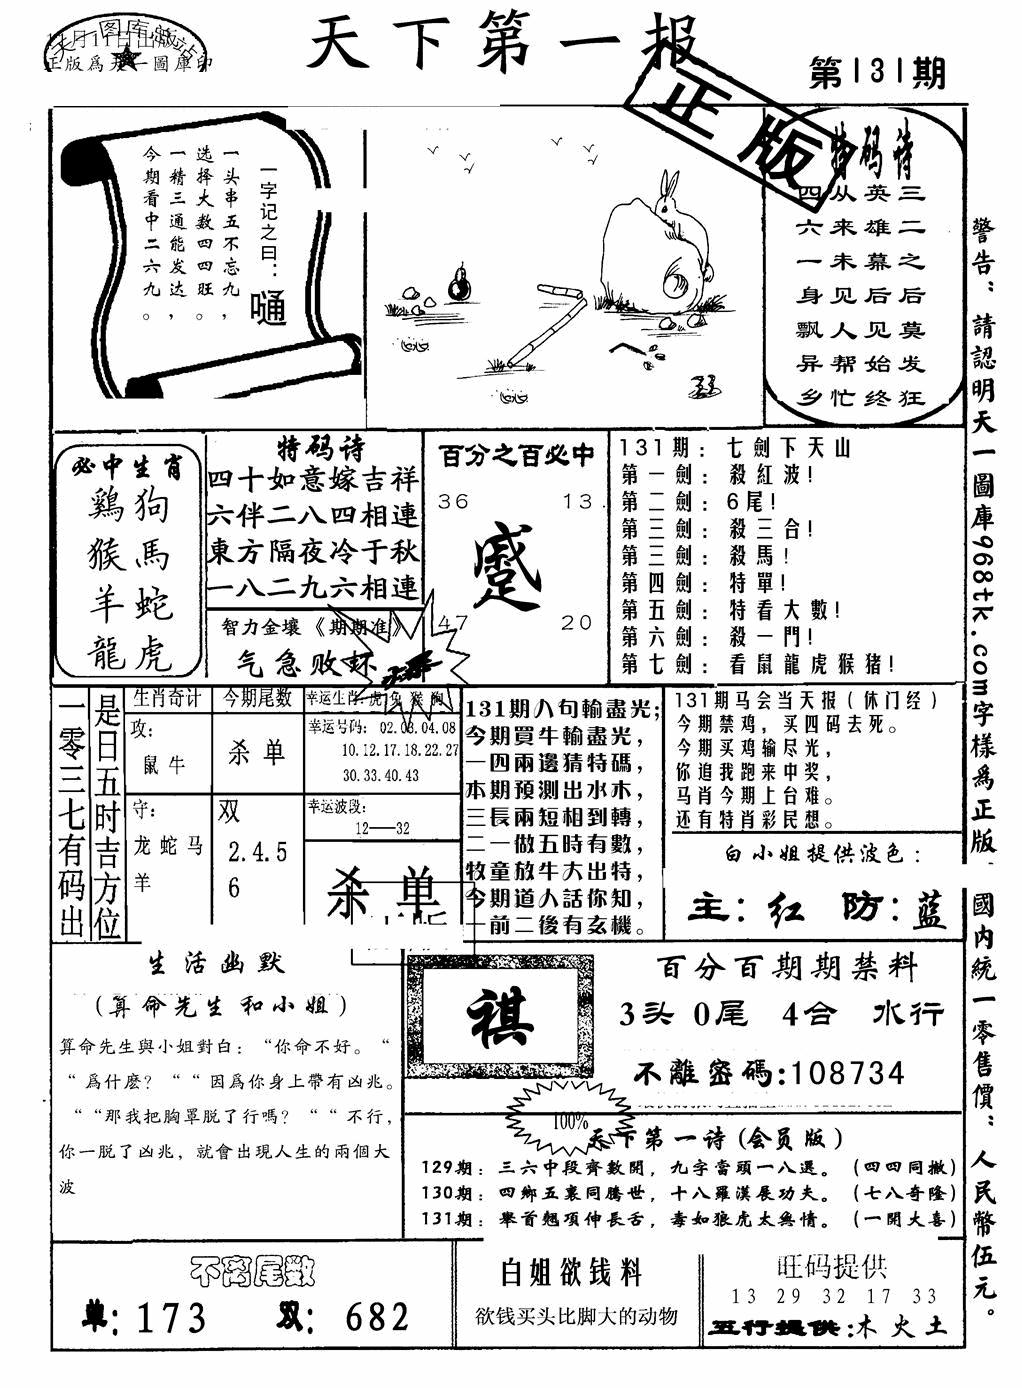 天下第一报
第131期
月11日出版
正版爲天一圖庫印
正版
一字记之曰：
嗵
一头串五不忘九，
选择大数四四旺。
一精三通能发达，
今期看中二六九。
特码诗
三二之后莫发狂
英雄慕后见始终
从来未见人帮忙
四六一身飘异乡
警告：請認明天一圖庫968tk.com字樣爲正版、國内統一零售價：人民幣伍元。
必中生肖
鷄狗
猴馬
羊蛇
龍虎
特码诗
四十如意嫁吉祥
六伴二八四相連
東方隔夜冷于秋
一八二九六相連
智力金壤《期期准》
气急败坏
百分之百必中
36 13.
蹙
47 20
131期：七劍下天山
第一劍：殺紅波!
第二劍：6尾!
第三劍：殺三合!
第三劍：殺馬!
第四劍：特單!
第五劍：特看大數!
第六劍：殺一門!
第七劍：看鼠龍虎猴猪!
是日五时吉方位
一零三七有码出
生肖奇计
攻:
鼠 牛
守:
龙 蛇 马
羊
今期尾数
杀 单
双
2.4.5
6
幸运生肖: 虎 兔 猴 狗
幸运号码: 02.03.04.08
10.12.17.18.22.27
30.33.40.43
幸运波段:
12—32
杀 单
131期八句輸盡光;
今期買牛輸盡光，
一四兩邊猜特碼，
本期預測出水木，
三長兩短相到轉，
二一做五時有數，
牧童放牛大出特，
今期道人話你知，
一前二後有玄機。
131期马会当天报(休门经)
今期禁鸡，买四码去死。
今期买鸡输尽光，
你追我跑来中奖，
马肖今期上台难。
还有特肖彩民想。
白小姐提供波色：
主：红 防：蓝
生活幽默
(算命先生 和小姐)
算命先生與小姐對白：“你命不好。“
“爲什麼？““因爲你身上帶有凶兆。
““那我把胸罩脱了行嗎？““不行，
你一脱了凶兆，就會出現人生的兩個大
波
祺
百分百期期禁料
3头 0尾 4合 水行
不離密碼:108734
100%
天下第一诗(会员版)
129期：三六中段齊數開，九字當頭一八選。(四四同撤)
130期：四鄉五裏同騰世，十八羅漢展功夫。(七八奇隆)
131期：舉首翹項伸長舌，毒如狼虎太無情。(一開大喜)
不离尾数
单: 173 双: 682
白姐欲钱料
欲钱买头比脚大的动物
旺码提供
13 29 32 17 33
五行提供:木 火 土